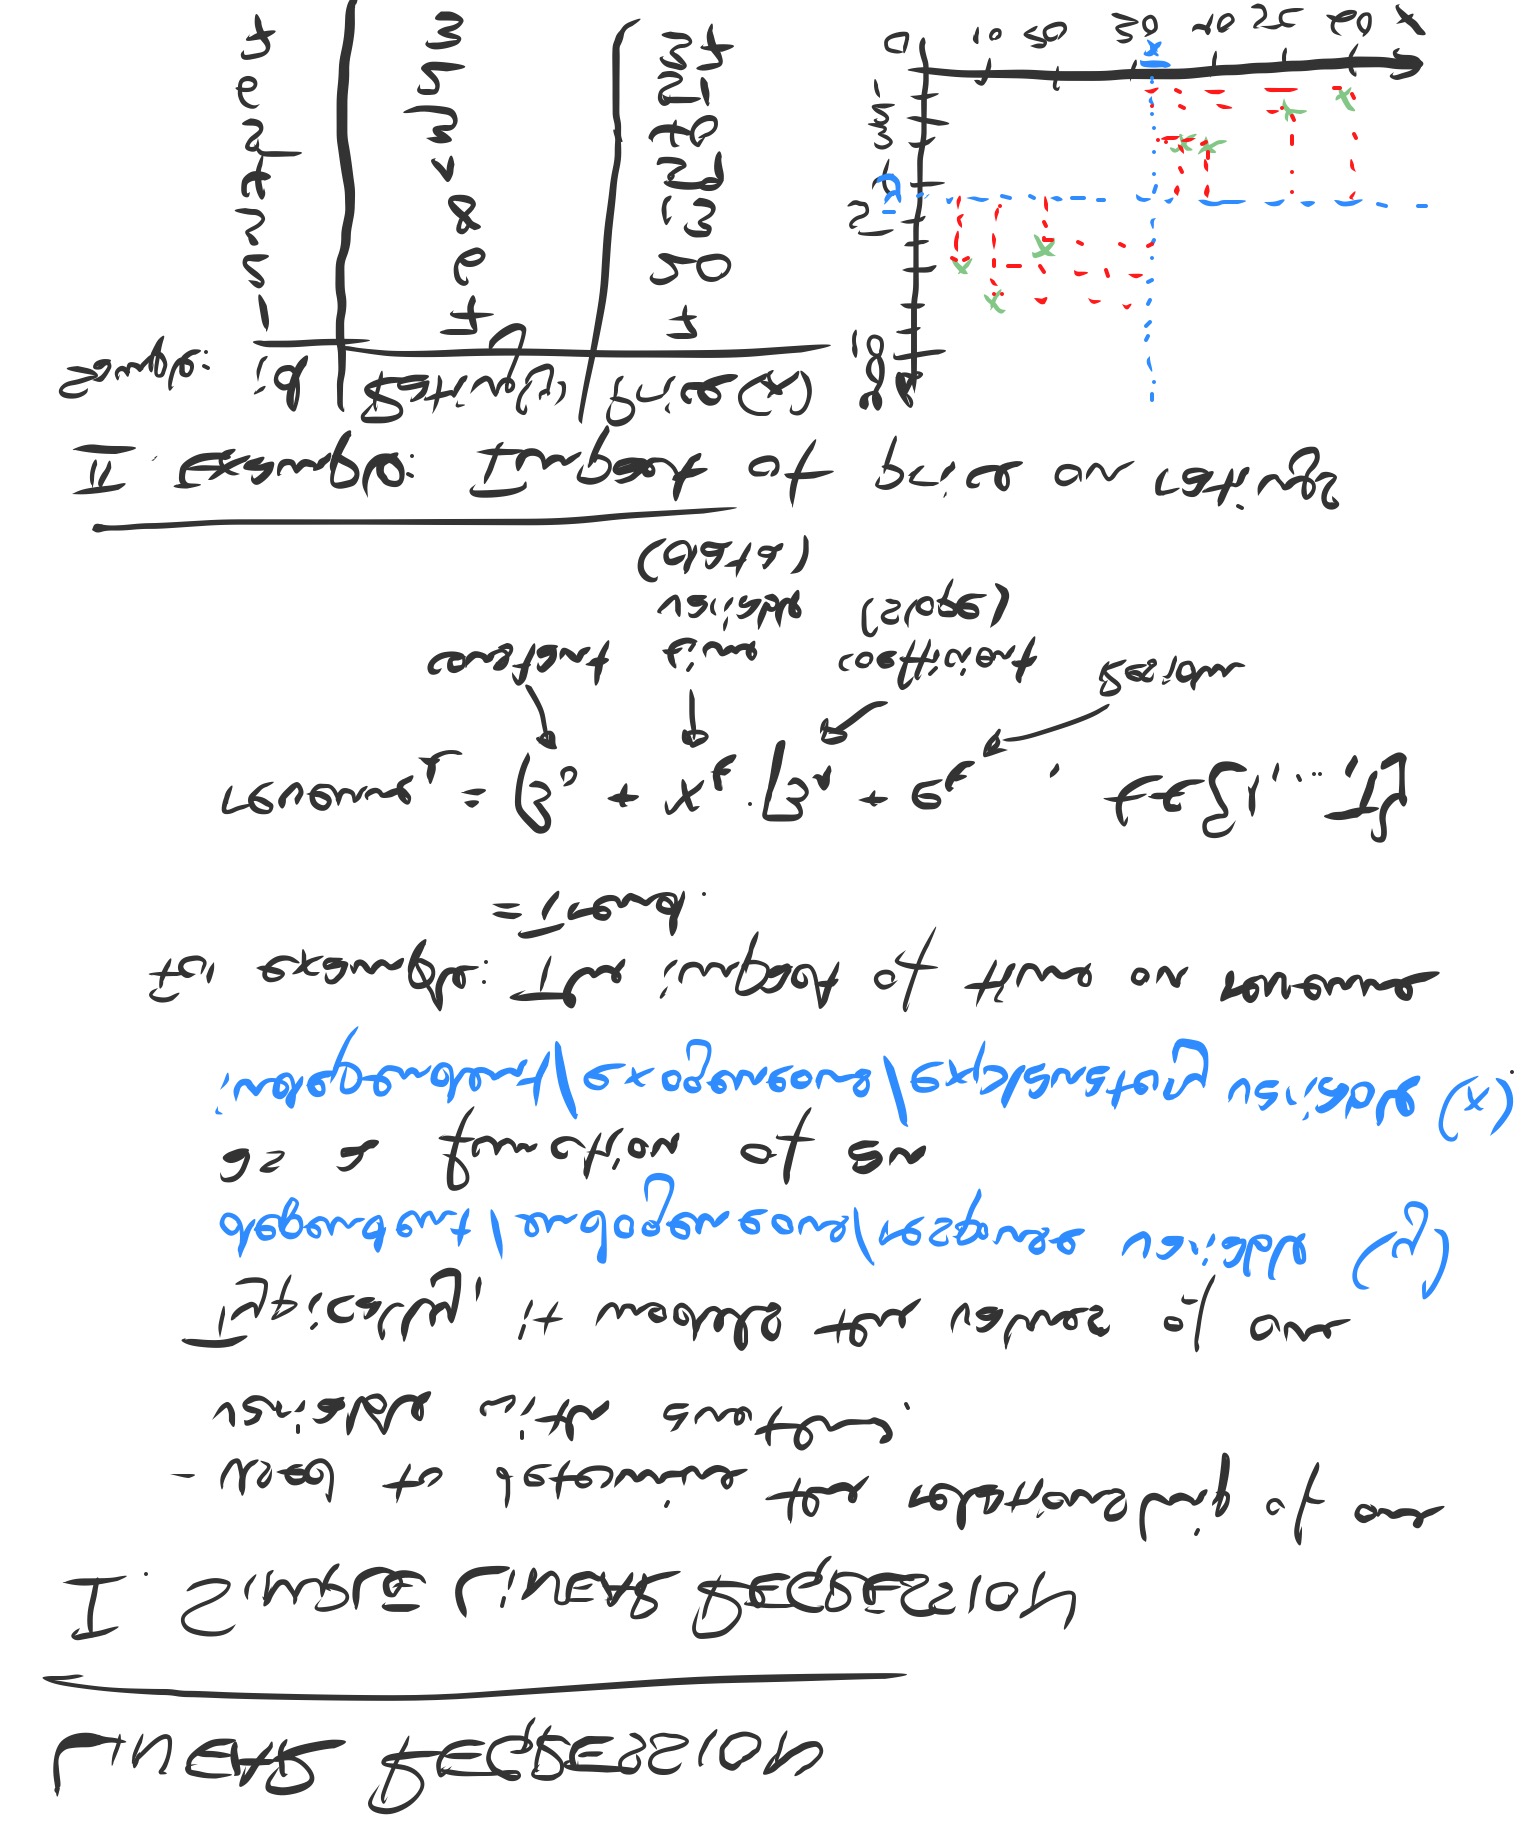 LINEAR REGRESSION
I. SIMPLE LINEAR REGRESSION
- used to determine the relationship of one
variable with another.
Typically, it models the values of one
dependent/endogeneous/response variable (y)
as a function of an
independent/exogeneous/explanatory variable (x).
For example: The impact of time on revenue
= Trend.
revenue_t = β₀ + x_t · β₁ + e_t , t ∈ {1, ..., T}
constant time coefficient Residuu
variable (slope)
(data)
II. Example: Impact of price on ratings
Sample: id Rating(y) Price(x)
1 7 7
2 6 20
3 8 13
4 1 59
5 3 40
6 2 51
7 3 37
y
10
5
ȳ 4
3
2
1
0 10 20 30 x̄ 40 50 60 x